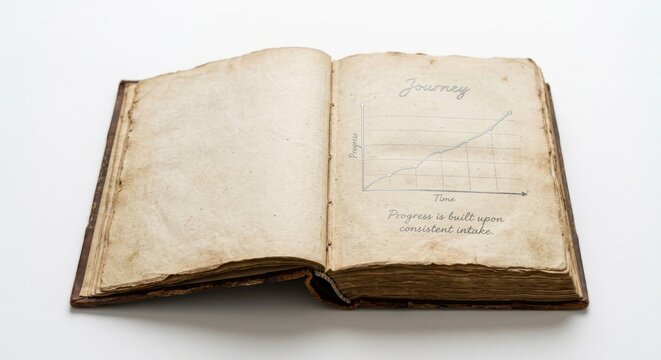 Journey
Progress
Time
Progress is built upon
consistent intake.